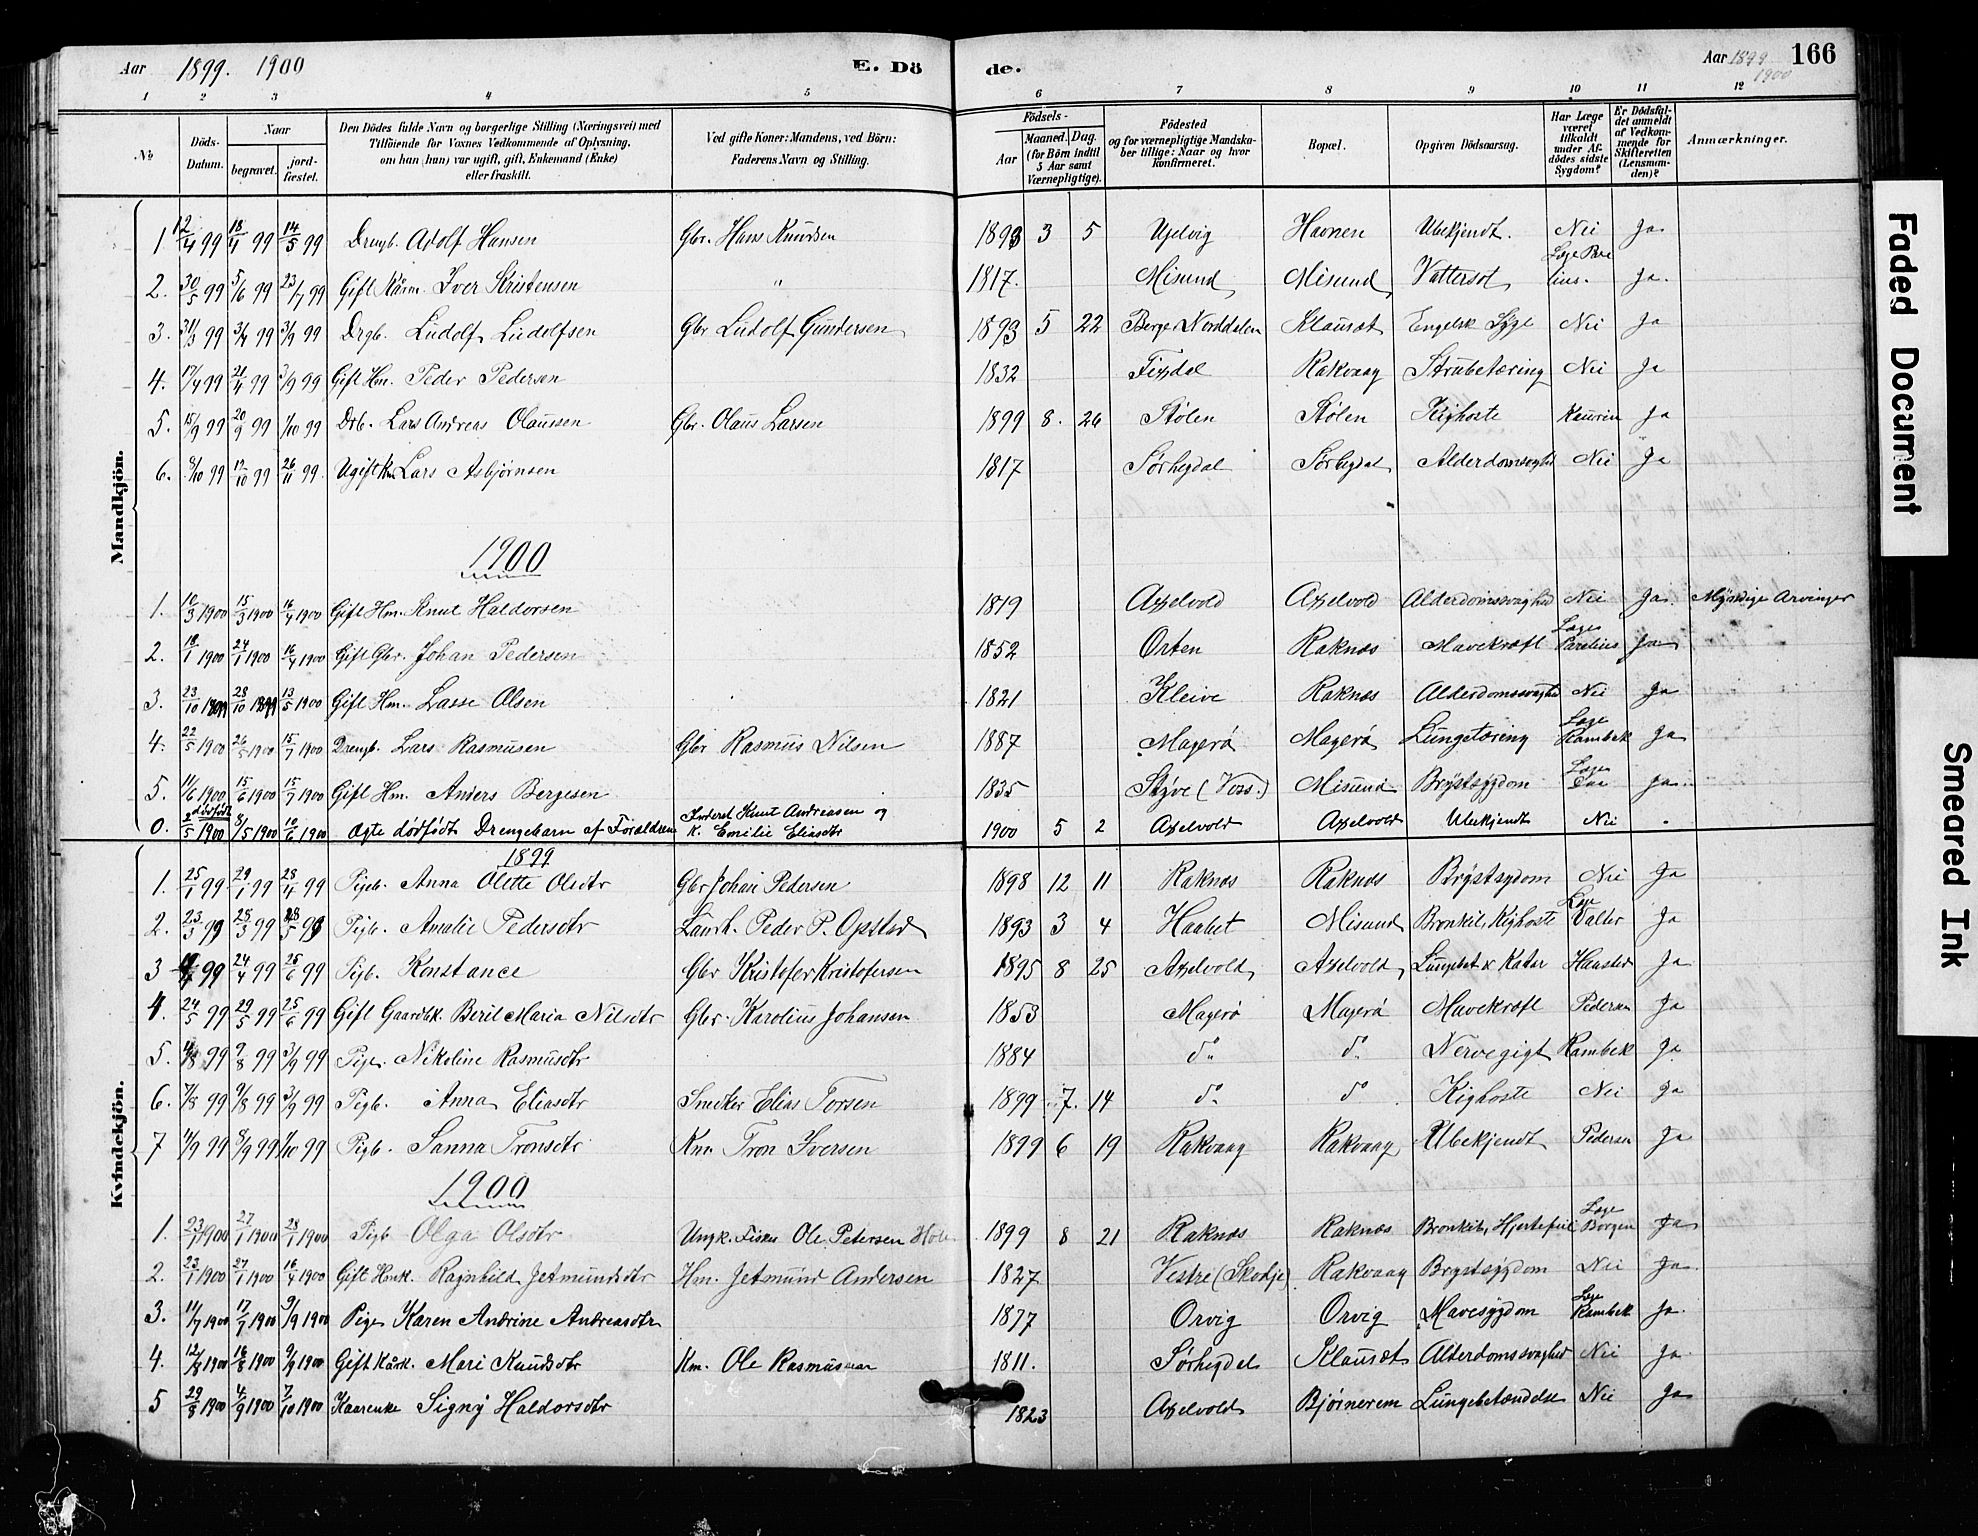 Aar 1899. 1900 E. Dö de. Aar 1899 1900 166
1 2 3 4 5 6 7 8 9 10 11 12
No Döds-Datum. Naar begravet. jordfæstet. Den Dödes fulde Navn og borgerlige Stilling (Næringsvei) med Tilföiende for Voxnes Vedkommende af Oplysning, om han (hun) var ugift, gift, Enkemand (Enke) eller fraskilt. Ved gifte Koner: Mandens, ved Börn: Faderens Navn og Stilling. Födsels- Aar Maaned. Dag. (for Börn indtil 5 Aar samt Værnepligtige). Födested og for værnepligtige Mandskaber tillige: Naar og hvor konfirmeret. Bopæl. Opgiven Dödsaarsag. Har Læge været tilkaldt under Afdödes sidste Sygdom? Er Dödsfaldet anmeldt af Vedkommende for Skifteretten (Lensmanden)? Anmærkninger.
Mandkjön.
1 12/4 99 18/4 99 14/5 99 Drengb. Adolf Hansen Gbr. Hans Knudsen 1893 3 5 Ujelvig Havnen Ubekjendt. Nei Ja
2. 30/5 99 5/6 99 23/7 99 Gift Kårm. Iver Kristensen " 1817. Misund Misund Vattersot Læge Parelius. Ja.
3. 31/3 99 3/4 99 3/9 99 Drgb. Ludolf Ludolfsen Gbr Ludolf Gundersen 1893 5 22 Berge Norddalen Klauset Engelsk Syge Nei Ja
4. 17/4 99 21/4 99 3/9 99 Gift Hm. Peder Pedersen 1832 Fixdal Rakvaag Strubetæring Nei Ja
5. 15/9 99 20/9 99 1/10 99 Drb. Lars Andreas Olaussen Gbr. Olaus Larsen 1899 8. 26 Stølen Stølen Kighoste Kaurin Ja
6. 8/10 99 17/10 99 26/11 99 Ugift Km Lars Asbjørnsen 1817 Sørhegdal Sørhegdal Alderdomsvaghd Nei Ja
1900
1. 10/3 1900 15/3 1900 16/4 1900 Gift Hm. Knut Haldorsen 1819 Axelvold Axelvold Alderdomssvaghed Nei Ja. Myndige Arvinger
2. 18/1 1900 24/1 1900 16/4 1900 Gift Gbr. Johan Pedersen 1852 Orten Raknes Mavekræft Læge Parelius Ja
3. 23/10 1899 28/10 1899 13/5 1900 Gift Hm. Lasse Olsen 1821 Kleive Raknes Alderdomssvaghd Nei Ja
4. 22/5 1900 26/5 1900 15/7 1900 Drengb. Lars Rasmusen Gbr Rasmus Nilsen 1887 Magerø Magerø Lungetæring Læge Rambek Ja
5. 11/6 1900 15/6 1900 15/7 1900 Gift Hm. Anders Bergesen 1835 Styve (Vors.) Misund Brystsygdom Læge Ja
0. dødfødt 2/5 1900 8/5 1900 10/6 1900 Ægte dödfödt Drengebarn af Forældrene Inderst Knut Andreasen og K. Emilie Eliasdtr 1900 5 2 Axelvold Axelvold Ubekjendt Nei
Kvindekjön.
1899
1. 25/1 99 29/1 99 23/4 99 Pigeb. Anna Olette Olsdtr Gbr Johan Pedersen 1898 12 11 Raknes Raknes Brystsydom Nei Ja
2. 23/3 99 25/3 99 28/5 99 Pigb. Amalie Pedersdtr Landh. Peder P. Opstad 1893 3 4 Haabet Misund Bronkit, Kighoste Læge Valter Ja
3 99 24/4 99 25/6 99 Pigb. Konstance Gbr Kristofer Kristofersen 1895 8 25 Axelvold Axelvold Lungebet & Katar Hansted Ja
4. 24/5 99 29/5 99 25/6 99 Gift Gaardbk. Beril Maria Nilsdtr Gbr. Karolius Johansen 1853 Magerø Magerø Mavekræft Pedersen Ja
5. 4/8 99 9/8 99 3/9 99 Pige. Nikoline Rasmusdtr 1884 do do Nervegigt Rambek Ja
6. 7/8 99 9/8 99 3/9 99 Pigb. Anna Eliasdtr Snedker Elias Torsen 1899 7. 14 do do Kighoste Nei Ja
7 4/9 99 8/9 99 1/10 99 Pigb. Sanna Tronsdtr Km. Tron Iversen 1899 6 19 Rakvaag Rakvaag Ubekjendt Pedersen Ja
1900
1. 23/1 1900 27/1 1900 28/1 1900 Pigb Olga Olsdtr Ungk. Fisker Ole Petersen 1899 8 21 Raknes Raknes Bronkit, Hjertefeil Læge Borgen Ja
2. 23/1 1900 27/1 1900 16/4 1900 Gift Hmk. Ragnhild Jetmundsdtr Hm. Jetmund Andersen 1827 Vestre (Skodje) Rakvaag Brystsygdom Nei Ja.
3. 11/7 1900 17/7 1900 9/9 1900 Pige Karen Andrine Andreasdtr 1877 Orvig Orvig Mavesygdom Læge Rambek Ja.
4. 12/8 1900 16/8 1900 9/9 1900 Gift Kårk. Mari Knudsdtr Km. Ole Rasmussen 1811. Sørhegdal Klauset Alderdomssvaghed Nei Ja.
5 29/8 1900 4/9 1900 7/10 1900 Kaarenke Signy Haldorsdtr 1823 Axelvold Bjørnerem Lungebetændelse Nei Ja
Faded Document
Smeared Ink